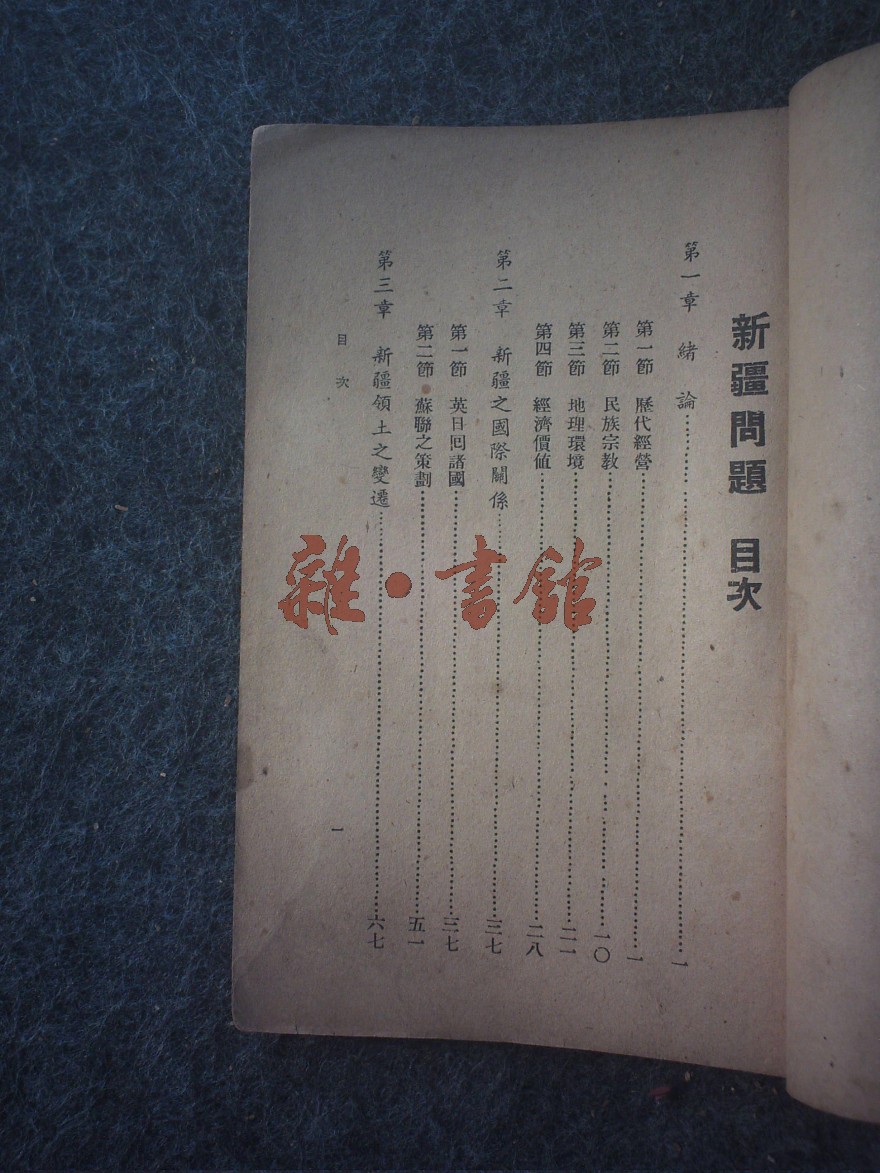 新疆問題 目次
第一章 緒論……一
第一節 歷代經營……一
第二節 民族宗教……一〇
第三節 地理環境……二一
第四節 經濟價值……二八
第二章 新疆之國際關係……三七
第一節 英日回諸國……三七
第二節 蘇聯之策劃……五一
第三章 新疆領土之變遷……六七
目次
一
雜·書館